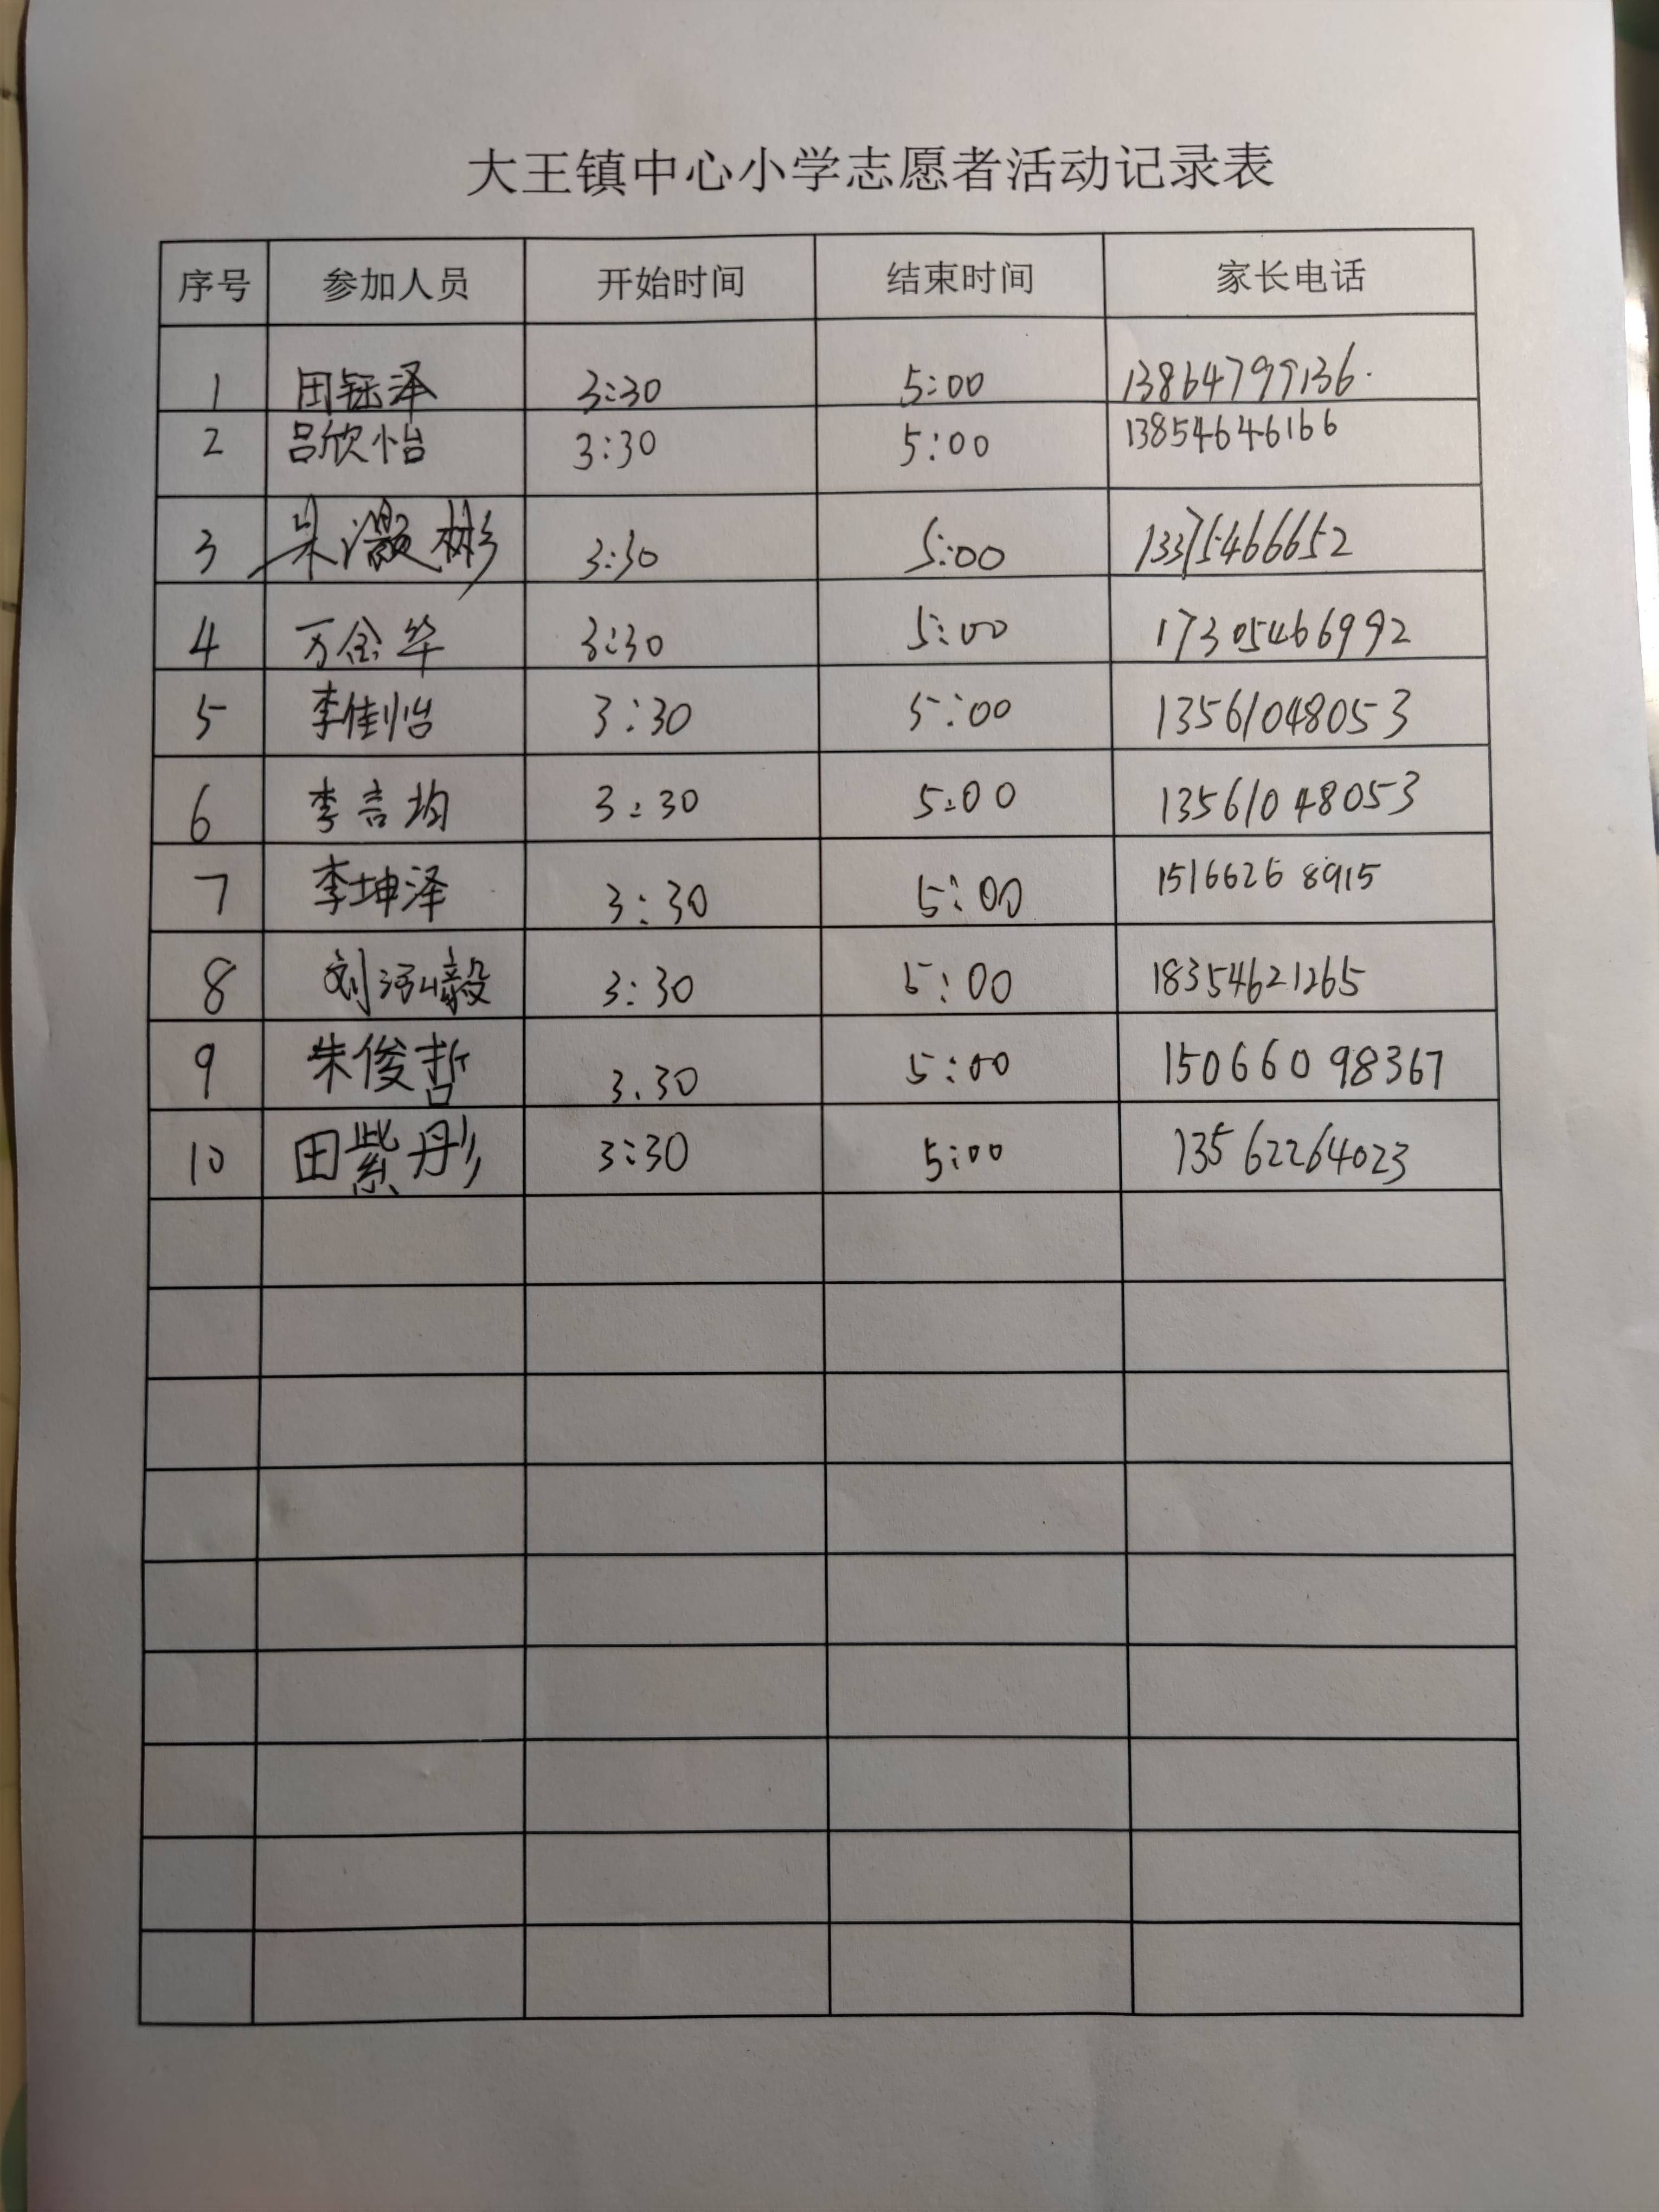 大王镇中心小学志愿者活动记录表
序号 参加人员 开始时间 结束时间 家长电话
1 田钰泽 3:30 5:00 13864799136.
2 吕欣怡 3:30 5:00 13854646166
3 朱灏彬 3:30 5:00 13375466652
4 万金华 3:30 5:00 17305466992
5 李佳怡 3:30 5:00 13561048053
6 李言均 3:30 5:00 13561048053
7 李坤泽 3:30 5:00 15166268915
8 刘泓毅 3:30 5:00 18354621265
9 朱俊哲 3.30 5:00 15066098367
10 田紫彤 3:30 5:00 13562264023